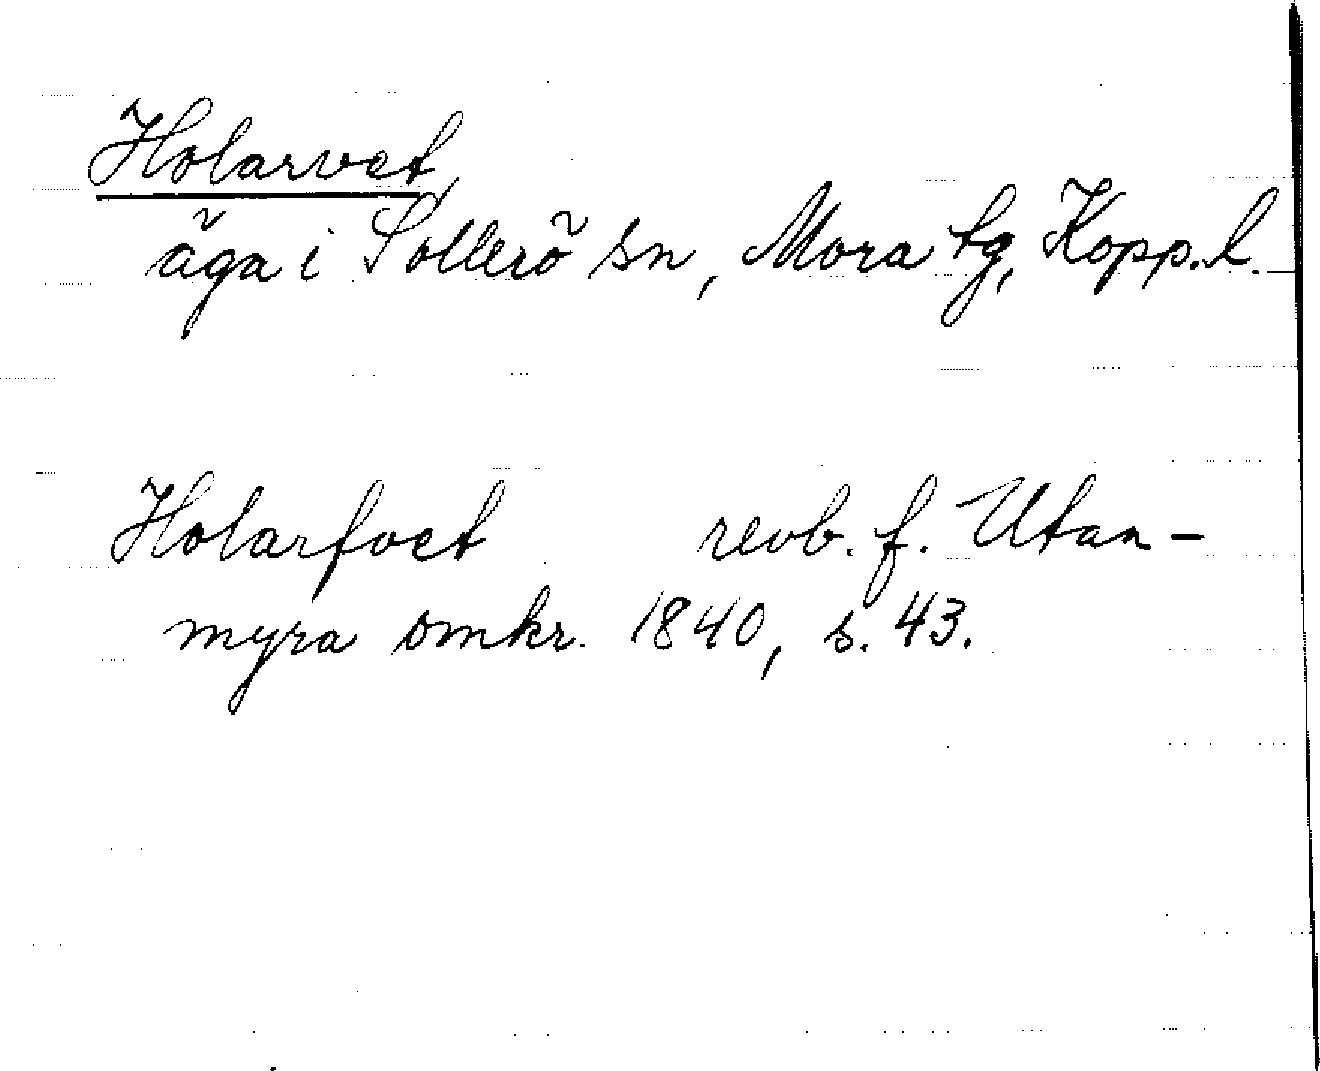 Holarvet,
äga i Sollerö sn, Mora tg, Kopp. l.
Holarfvet revb. f. Utan-
myra omkr. 1840, s. 43.